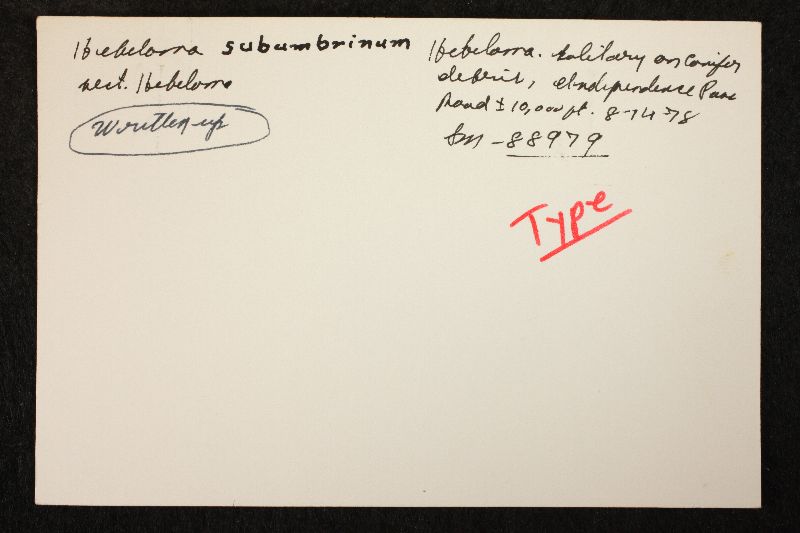 Hebeloma subumbrinum
sect. Hebeloma
Written-up
Hebeloma. solitary on conifer
debris, Independence Pass
Road ± 10,000 ft. 8-14-78
Sm - 88979
Type